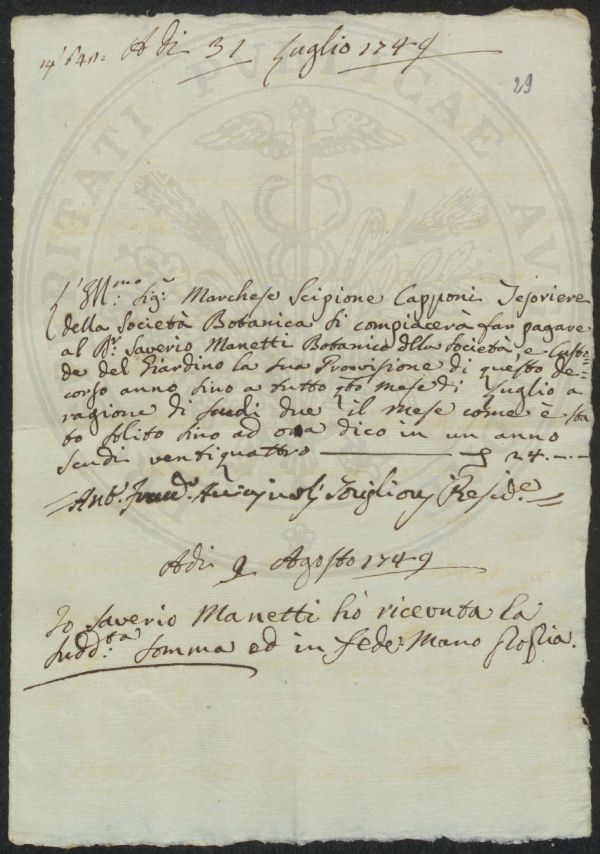 Adi 31 Luglio 1749
29
L'Ill:mo Sig:r Marchese Scipione Capponi Tesoriere
della Società Botanica si compiacerà far pagare
al D:r Saverio Manetti Botanico d:lla Società, e Custo
de del Giardino la sua Provisione di questo de
corso anno sino a tutto q:to mese di Luglio a
ragione di scudi due il mese come è sta
to solito sino ad ora dico in un anno
scudi ventiquattro 24.
Presid:e
Adi 9 Agosto 1749
Io Saverio Manetti hò ricevuta la
sudd:ta somma ed in fede Mano propria.
PUBLICAE